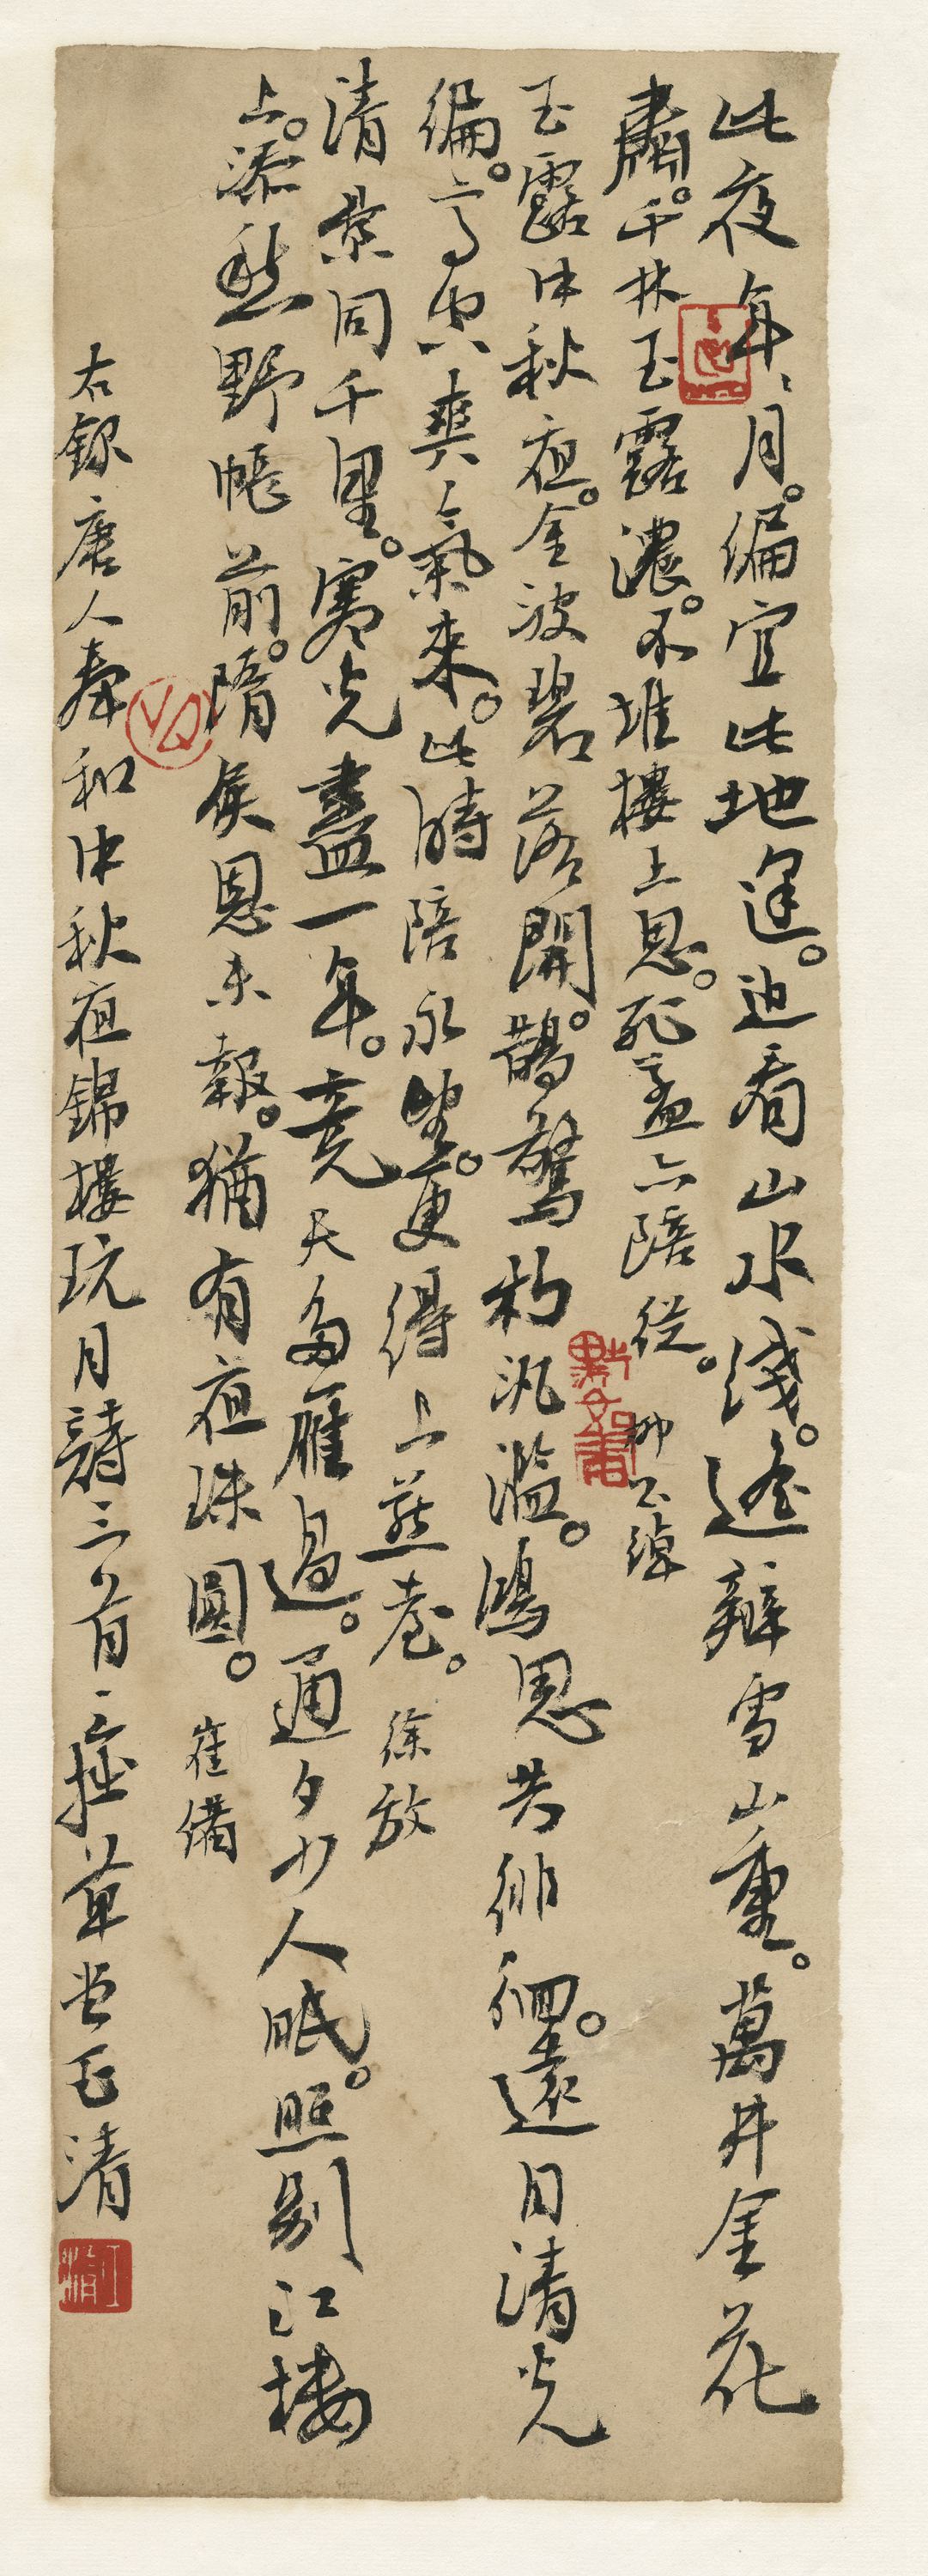 此夜年、月。編宜此地逢。近看山水淺。遙辨雪山重。萬井金花
肅。千林玉露濃。不堆樓上思。飛蓋亦陪從。柳公綽
玉露中秋夜。金波碧落開。鵲驚初汎濫。鴻思共徘徊。遠月清光
編。高空爽氣來。此時陪永望。更得上燕臺。徐放
清景同千里。寒光盡一年。竟天多雁過。通夕少人眠。照別江樓
上。添愁野帳前。隋侯恩未報。猶有夜珠圓。崔備
右錄唐人奉和中秋夜錦樓玩月詩三首草堂玉清